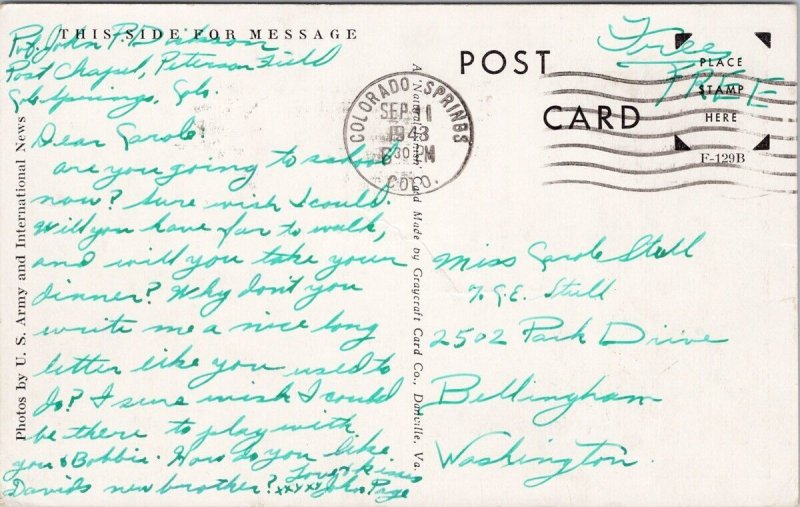 THIS SIDE FOR MESSAGE
Pvt. John P.
Post Chapel, Peterson Field
Colo. Springs, Colo.
Dear Carole:
are you going to school
now? Sure wish I could.
Will you have far to walk,
and will you take your
dinner? Why don't you
write me a nice long
letter like you used to
do? I sure wish I could
be there to play with
you & Bobbie. How do you like
Davids new brother?
Love & kisses
xxxxx John Page
Photos by U. S. Army and International News
A "Natural Finish" Card Made by Graycraft Card Co., Danville, Va.
POST
CARD
COLORADO SPRINGS
SEP 11
1943
30 PM
COLO.
Free
FREE
PLACE
STAMP
HERE
F-129B
Miss Carole Stull
% G.E. Stull
2502 Park Drive
Bellingham
Washington.